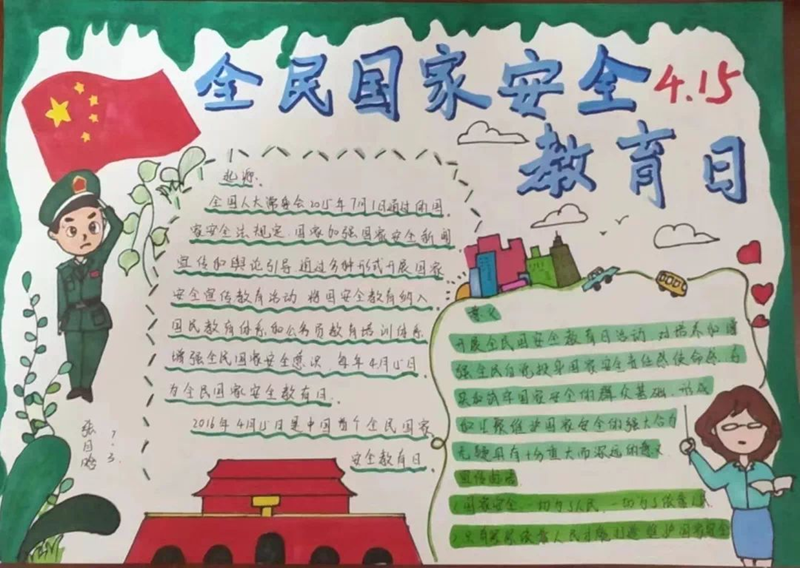 全民国家安全 4.15
教育日
起源:
全国人大常委会2015年7月1日通过的国
家安全法规定,国家加强国家安全新闻
宣传和舆论引导,通过多种形式开展国家
安全宣传教育活动,将国家安全教育纳入
国民教育体系和公务员教育培训体系
增强全民国家安全意识,每年4月15日
为全民国家安全教育日。
2016年4月15日是中国首个全民国家
安全教育日。
意义
开展全民国家安全教育日活动,对培养和增
强全民自觉投身国家安全责任与使命感,
国家安全的群众基础,形成
维护国家安全的强大合力
具有十分重大而深远的意义
宣传
国家安全一切为了人民,一切
7.3